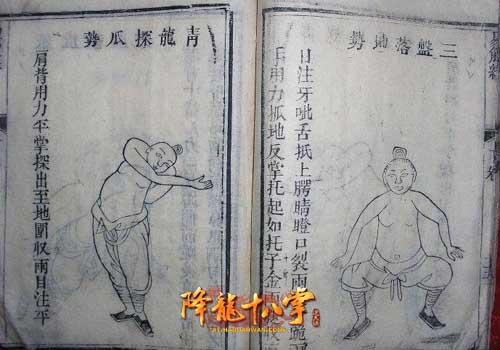 三盤落地勢
目注牙呲舌抵上腭睛瞪口裂兩
手用力抓地反掌托起如托千金
青龍探爪勢
肩背用力平掌探出至地圍収兩目注平
降龍十八掌